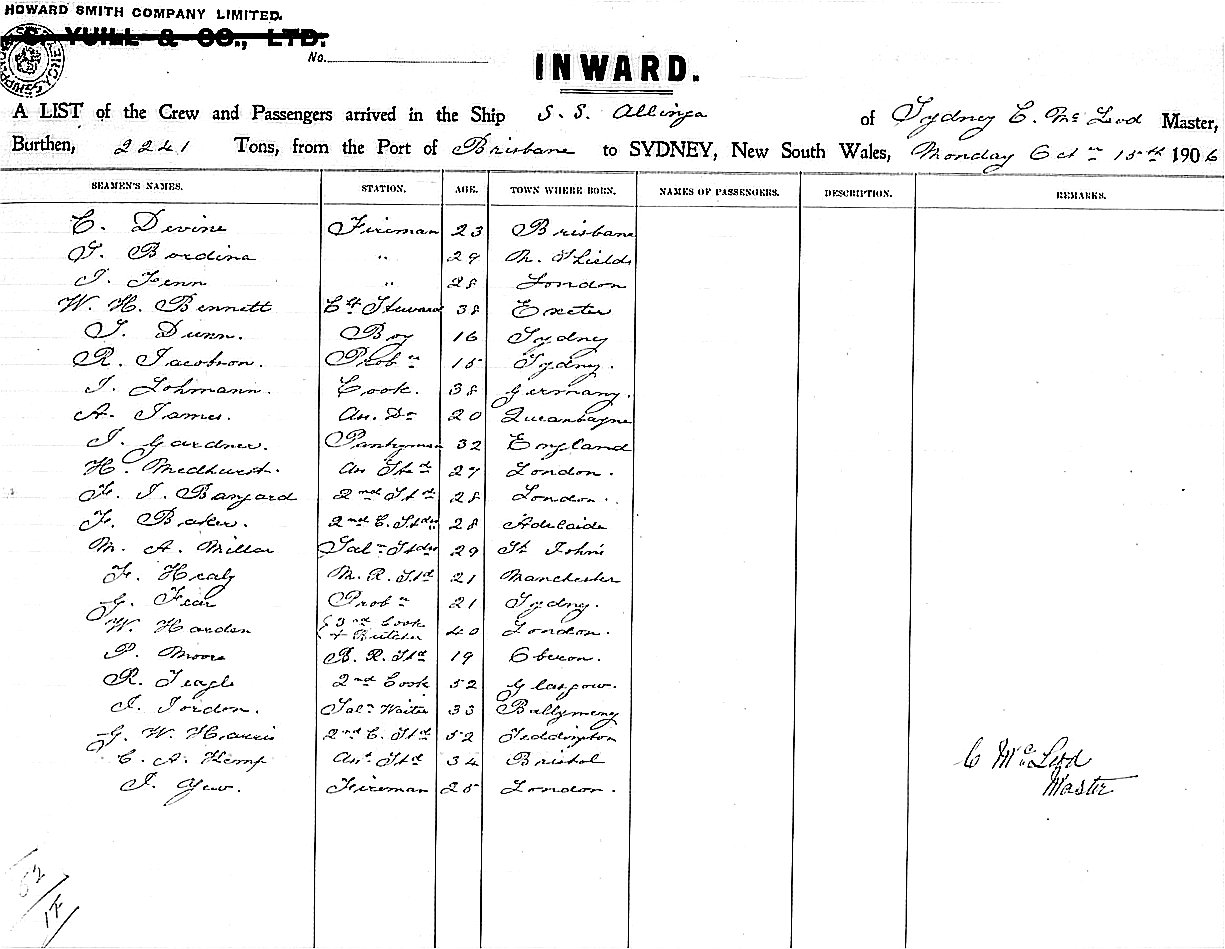 HOWARD SMITH COMPANY LIMITED.
YUILL & CO., LTD.
No.
INWARD.
A LIST of the Crew and Passengers arrived in the Ship S. S. Allinga of Sydney C. Mc Leod Master,
Burthen, 2241 Tons, from the Port of Brisbane to SYDNEY, New South Wales, Monday Octr 15th 1906
SEAMEN'S NAMES. STATION. AGE. TOWN WHERE BORN. NAMES OF PASSENGERS. DESCRIPTION. REMARKS.
C. Devine Fireman 23 Brisbane
Bordina " 29 N. Shields
Fenn " 28 London
W. H. Bennett Cf Steward 38 Exeter
Dunn. Boy 16 Sydney
R. Jacobson. Probn 15 Sydney.
Lohmann. Cook. 38 Germany.
A. James. Ass. Do 20 Queanbeyan
J. Gardner. Pantryman 32 England
H. Medhurst. Ass Std 27 London.
F. J. Banyard 2nd Std 28 London.
F. Baker. 2nd C. Stdss 28 Adelaide
M. A. Millar Saln Stdss 29 St John's
F. Healy M. R. Std 21 Manchester
G. Fear Probn 21 Sydney.
W. Harden { 3rd Cook + Butcher 40 London.
P. Moore B. R. Std 19 Oberon.
R. Teagle 2nd Cook 52 Glasgow.
J. Jordon. Saln Waiter 33 Ballymeny
G. W. Harris 2nd C. Std 52 Teddington
C. A. Kemp Asst Std 34 Bristol
Fireman 25 London.
C McLeod
Master
52/17